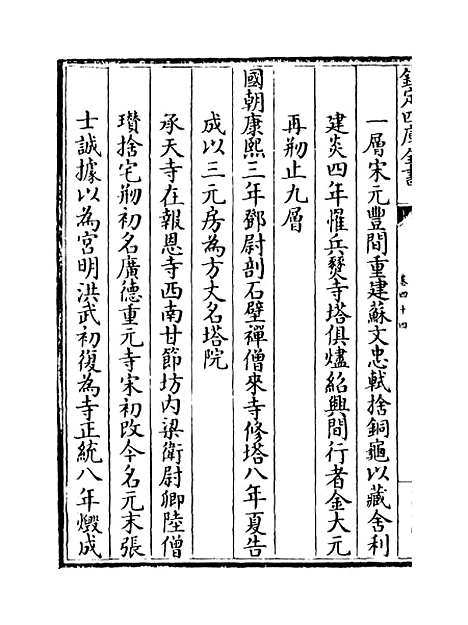 欽定四庫全書
卷四十四
一層宋元豐間重建蘇文忠軾捨銅龜以藏舍利
建炎四年罹兵燹寺塔俱燼紹興間行者金大元
再剏止九層
國朝康熙三年鄧尉剖石壁禪僧來寺修塔八年夏告
成以三元房為方丈名塔院
承天寺在報恩寺西南甘節坊内梁衛尉卿陸僧
瓚捨宅剏初名廣德重元寺宋初改今名元末張
士誠據以為宮明洪武初復為寺正統八年燬成